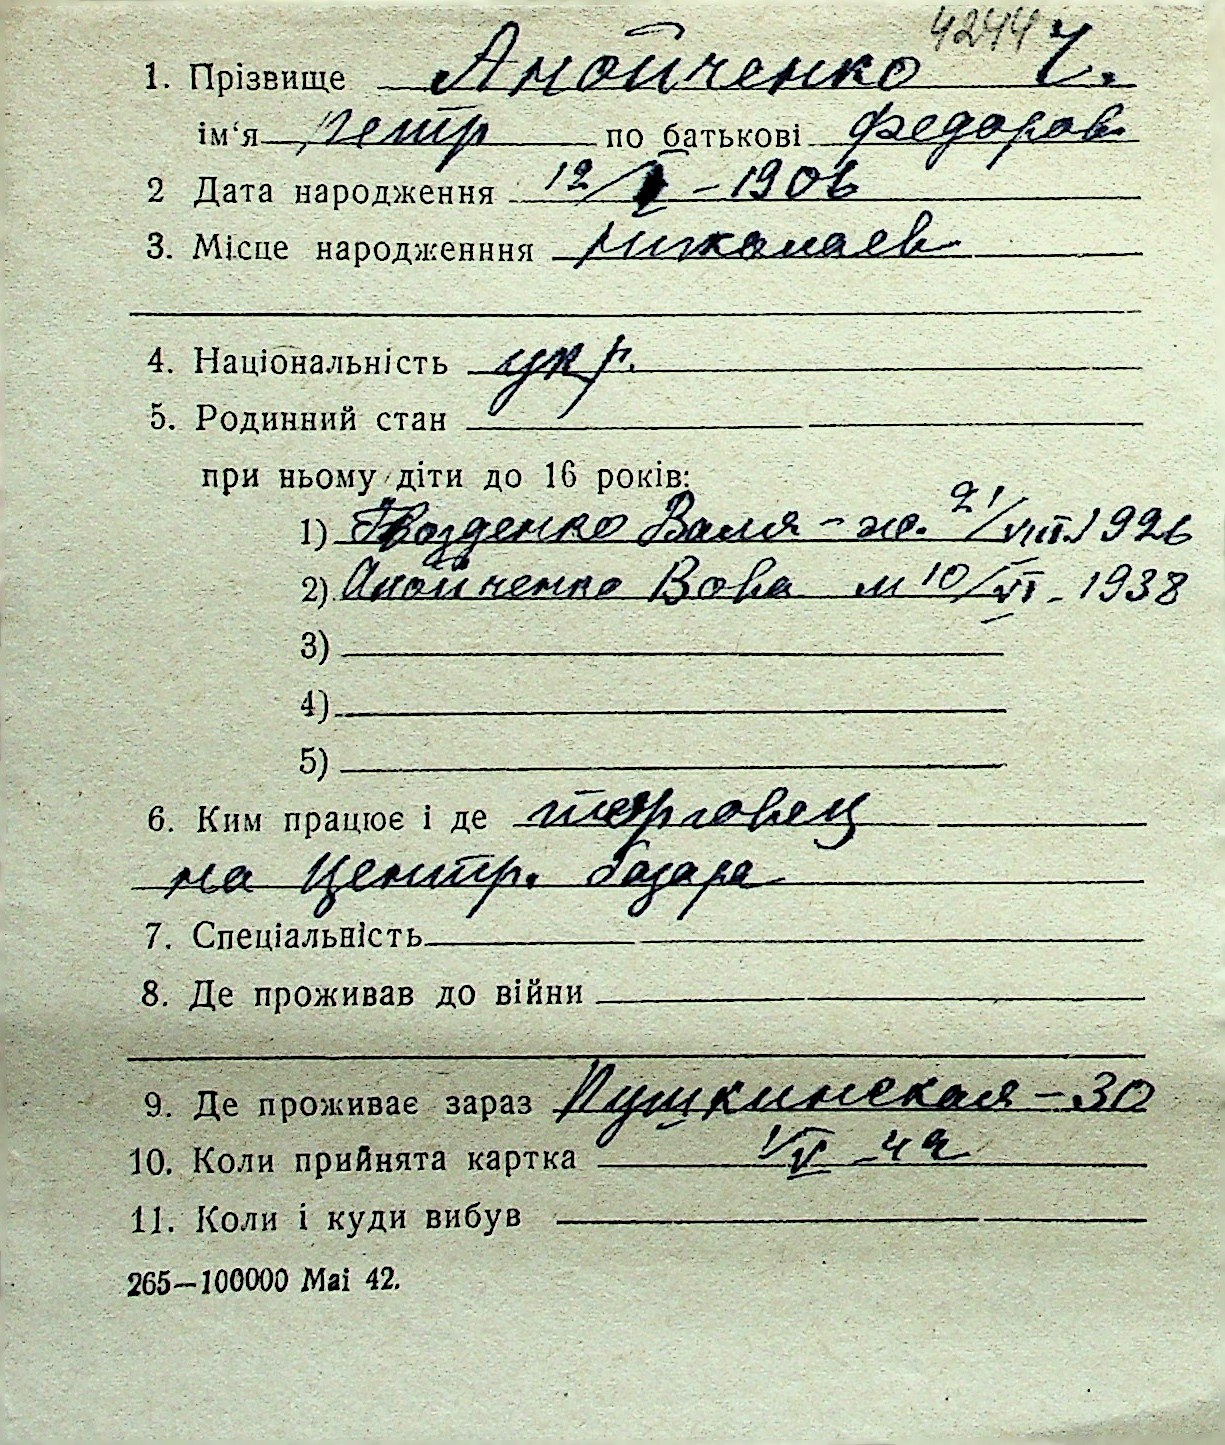 4244
1. Прізвище Анойченко Ч.
ім‘я Петр по батькові Федоров.
2 Дата народження 12/ – 1906
3. Місце народженння Николаев
4. Національність укр.
5. Родинний стан
при ньому діти до 16 років:
1) Гвозденко Валя – ж. 21/VIII.1926
2) Анойченко Вова м 10/VI - 1938
3)
4)
5)
6. Ким працює і де торговец
на Центр. базаре
7. Спеціальність
8. Де проживав до війни
9. Де проживає зараз Пушкинская – 30
10. Коли прийнята картка 1/V - 42
11. Коли і куди вибув
265—100000 Mai 42.